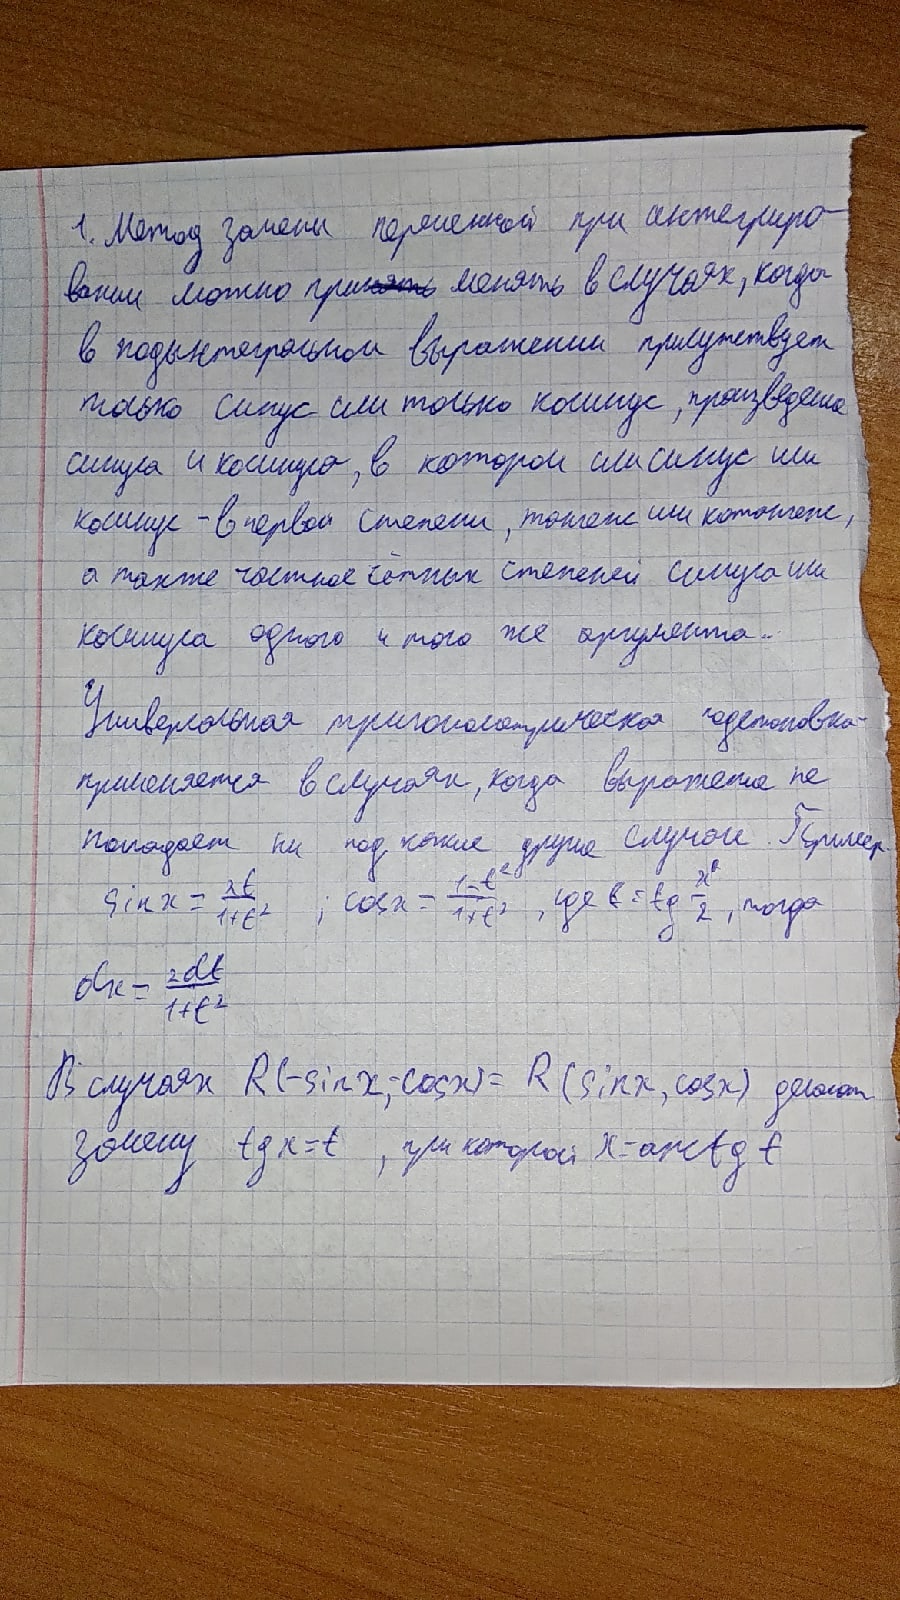 1. Метод замены переменной при интегриро-
вании можно принять менять в случаях, когда
в подынтегральном выражении присутствует
только синус или только косинус, произведение
синуса и косинуса, в котором или синус или
косинус - в первой степени, тангенс или котангенс,
а также частное чётных степеней синуса или
косинуса одного и того же аргумента..
Универсальная тригонометрическая подстановка
применяется в случаях, когда выражение не
попадает ни под какие другие случаи. Пример.
sin x = 2t/1+t² ; cos x = 1-t²/1+t² , где t = tg x/2 , тогда
dx = 2dt/1+t²
В случаях R(-sin x,-cos x) = R (sin x, cos x) делают
замену tg x = t , при которой x = arctg t